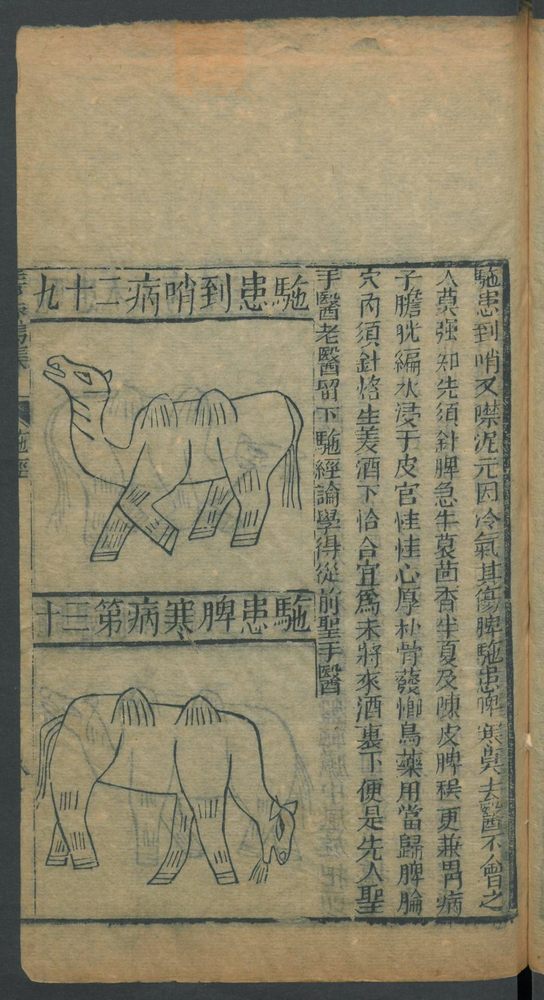 駞患到哨又噤泥元因冷氣其傷脾駞患脾寒莫去醫不曾之
人莫强知先須針脾急牛蒡茴香半夏及陳皮脾稷更兼胃病
子膽胱編水浸于皮官桂桂心厚朴骨薐㯽烏藥用當歸脾腧
穴內須針烙生姜酒下恰合宜爲末將來酒裏下便是先人聖
手醫老醫留下駞經論學得從前聖手醫
駞患到哨病二十九
駞患脾寒病第三十
駞經